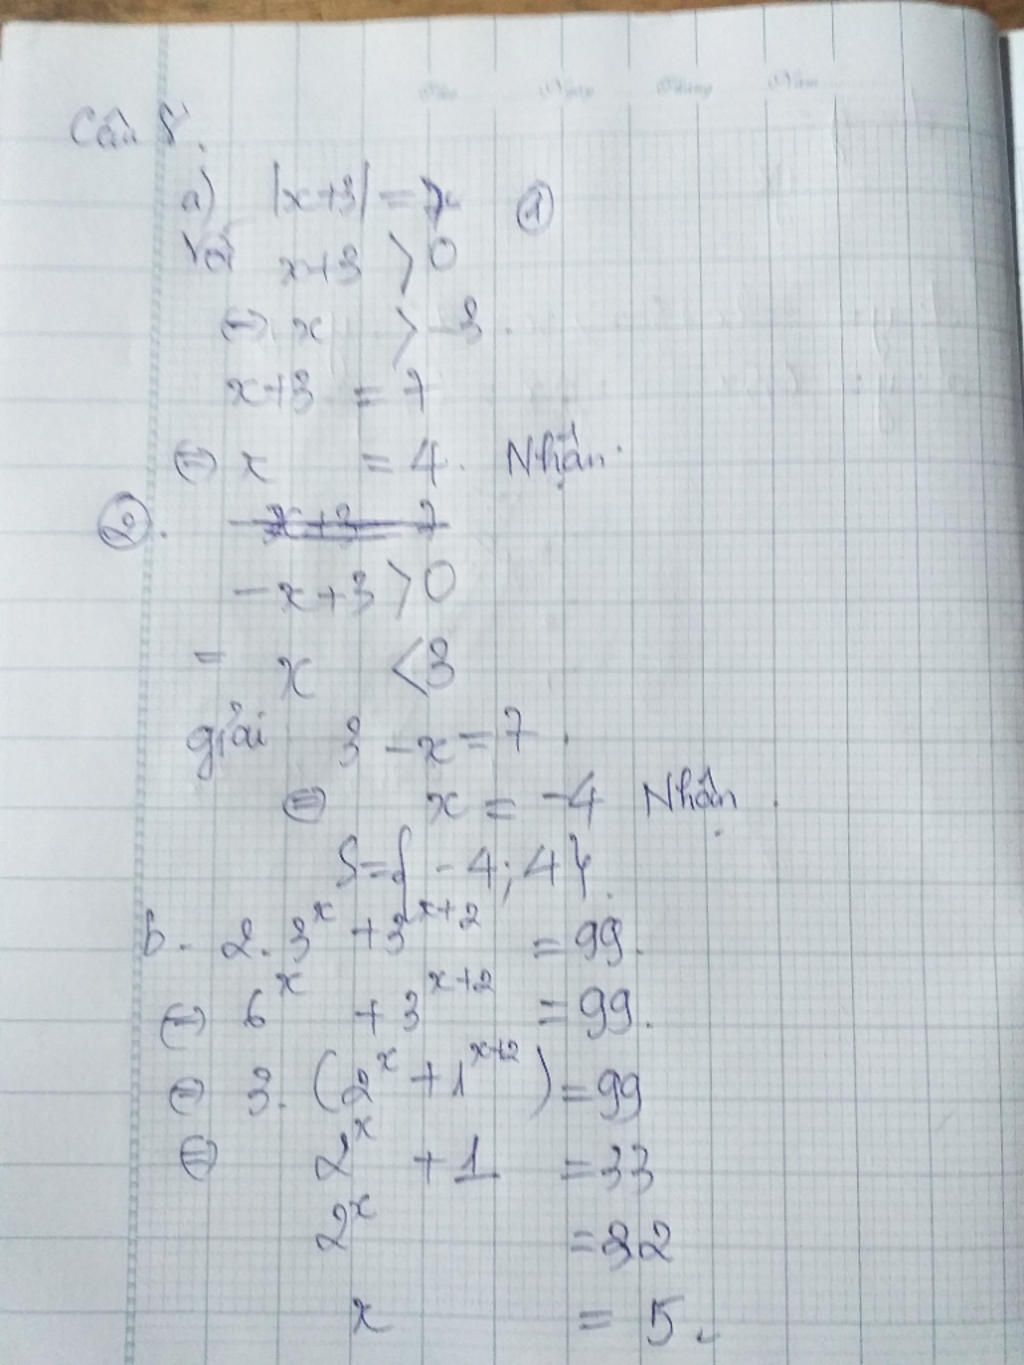 Câu 5.
a) |x+3| = 7 ①
Với x+3 > 0
⇔ x > -3.
x+3 = 7
⇔ x = 4. Nhận.
②.
-x+3 > 0
= x < 3
giải 3 - x = 7.
⇔ x = -4 Nhận.
S = { -4; 4}.
b. 2.3^x + 3^{x+2} = 99.
⇔ 6^x + 3^{x+2} = 99.
⇔ 3.(2^x + 1^{x+2}) = 99
⇔ 2^x + 1 = 33
2^x = 32
x = 5.